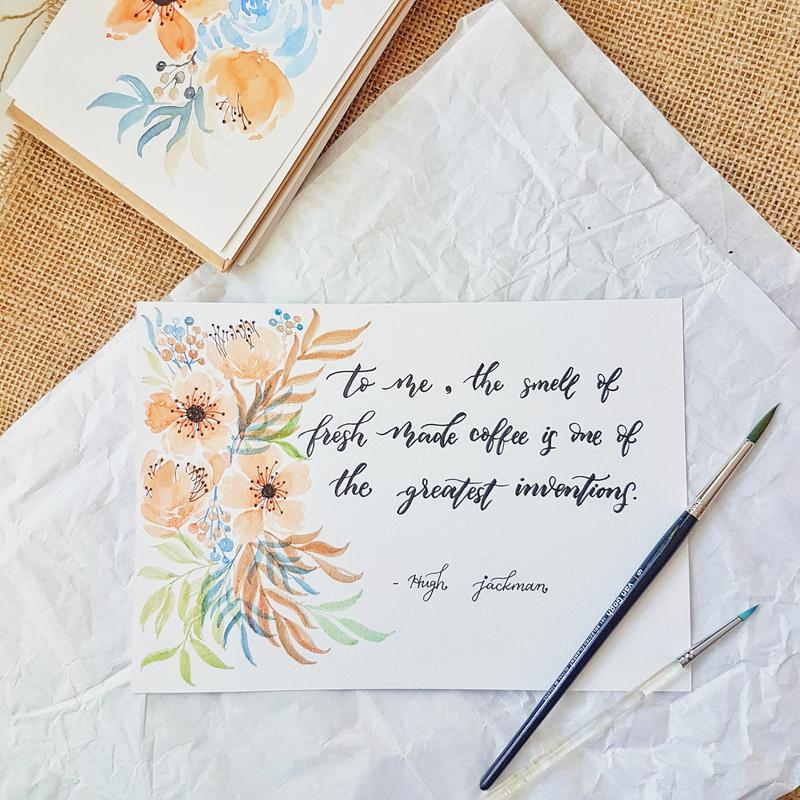 to me, the smell of
fresh made coffee is one of
the greatest inventions.
- Hugh jackman
Van Gogh